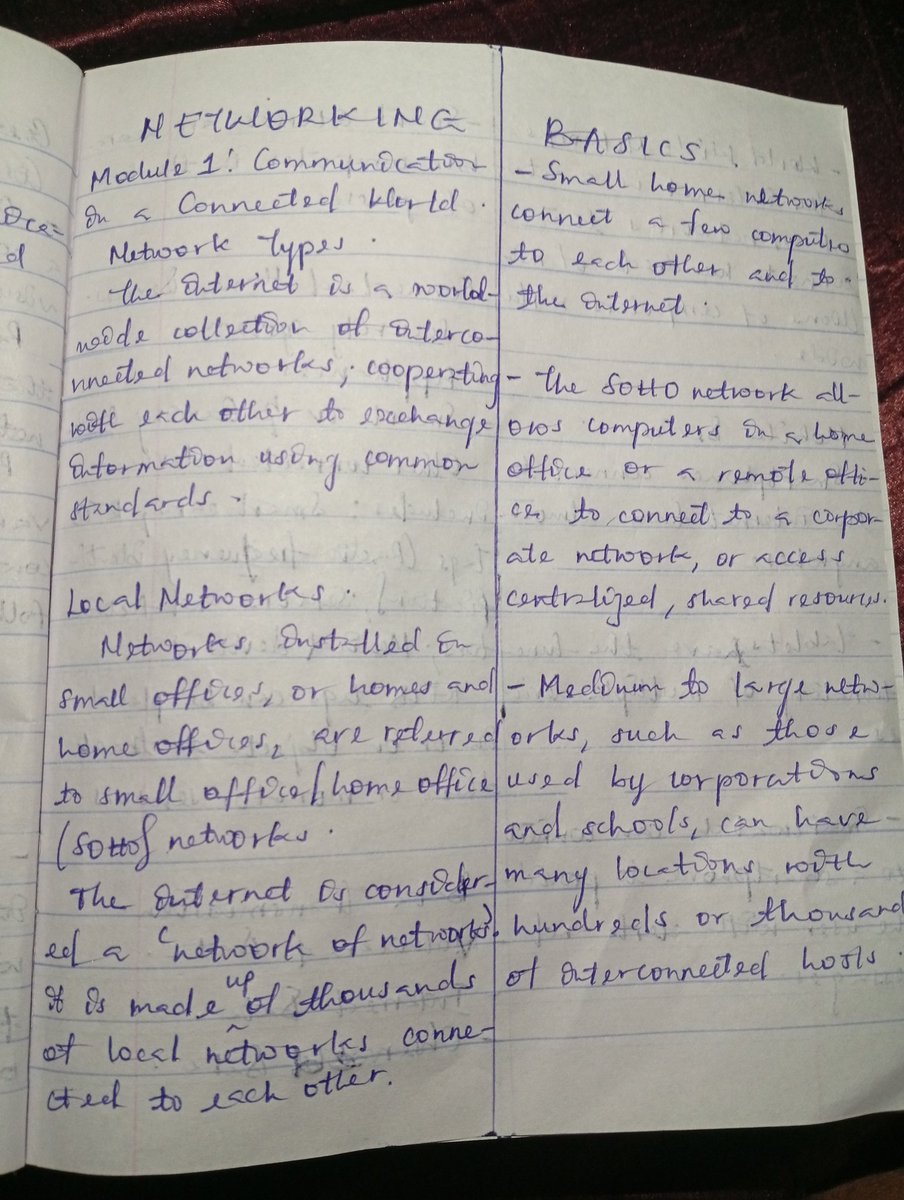 NETWORKING
Module 1: Communication
in a Connected World.
Network Types.
The internet is a world-
wide collection of interco-
nnected networks, cooperating
with each other to exchange
information using common
standards.
Local Networks.
Networks, installed in
small offices, or homes and
home offices, are referred
to small office/home office
(SOHO) networks.
The internet is consider-
ed a 'network of networks'.
it is made up of thousands
of local networks conne-
cted to each other.
BASICS.
- Small home networks
connect a few computers
to each other and to
the internet.
- The SOHO network all-
ows computers in a home
office or a remote offi-
ce, to connect to a corpor-
ate network, or access
centralized, shared resources.
- Medium to large netw-
orks, such as those
used by corporations
and schools, can have
many locations with
hundreds or thousand
of interconnected hosts.